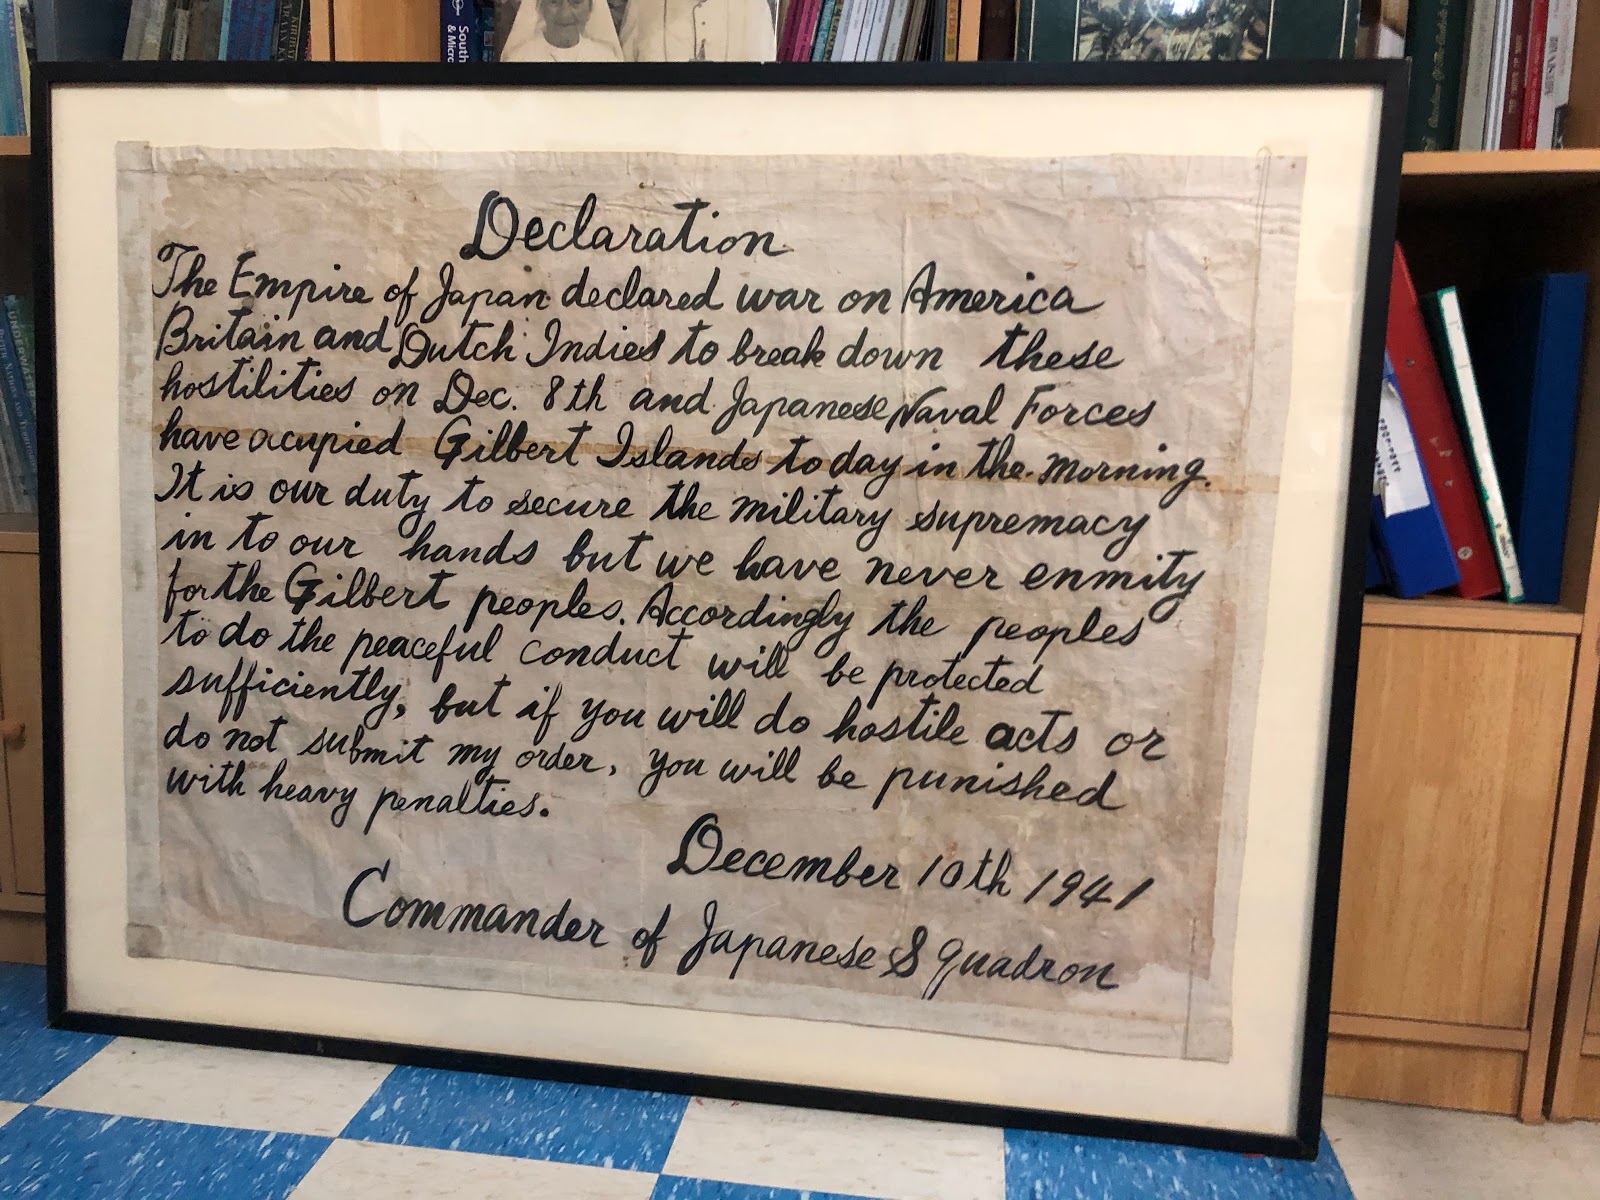 Declaration
The Empire of Japan declared war on America
Britain and Dutch Indies to break down these
hostilities on Dec. 8th and Japanese Naval Forces
have acupied Gilbert Islands to day in the morning.
It is our duty to secure the military supremacy
in to our hands but we have never enmity
for the Gilbert peoples. Accordingly the peoples
to do the peaceful conduct will be protected
sufficiently, but if you will do hostile acts or
do not submit my order, you will be punished
with heavy penalties.
December 10th 1941
Commander of Japanese Squadron
South
& Micro
UNDERWATER